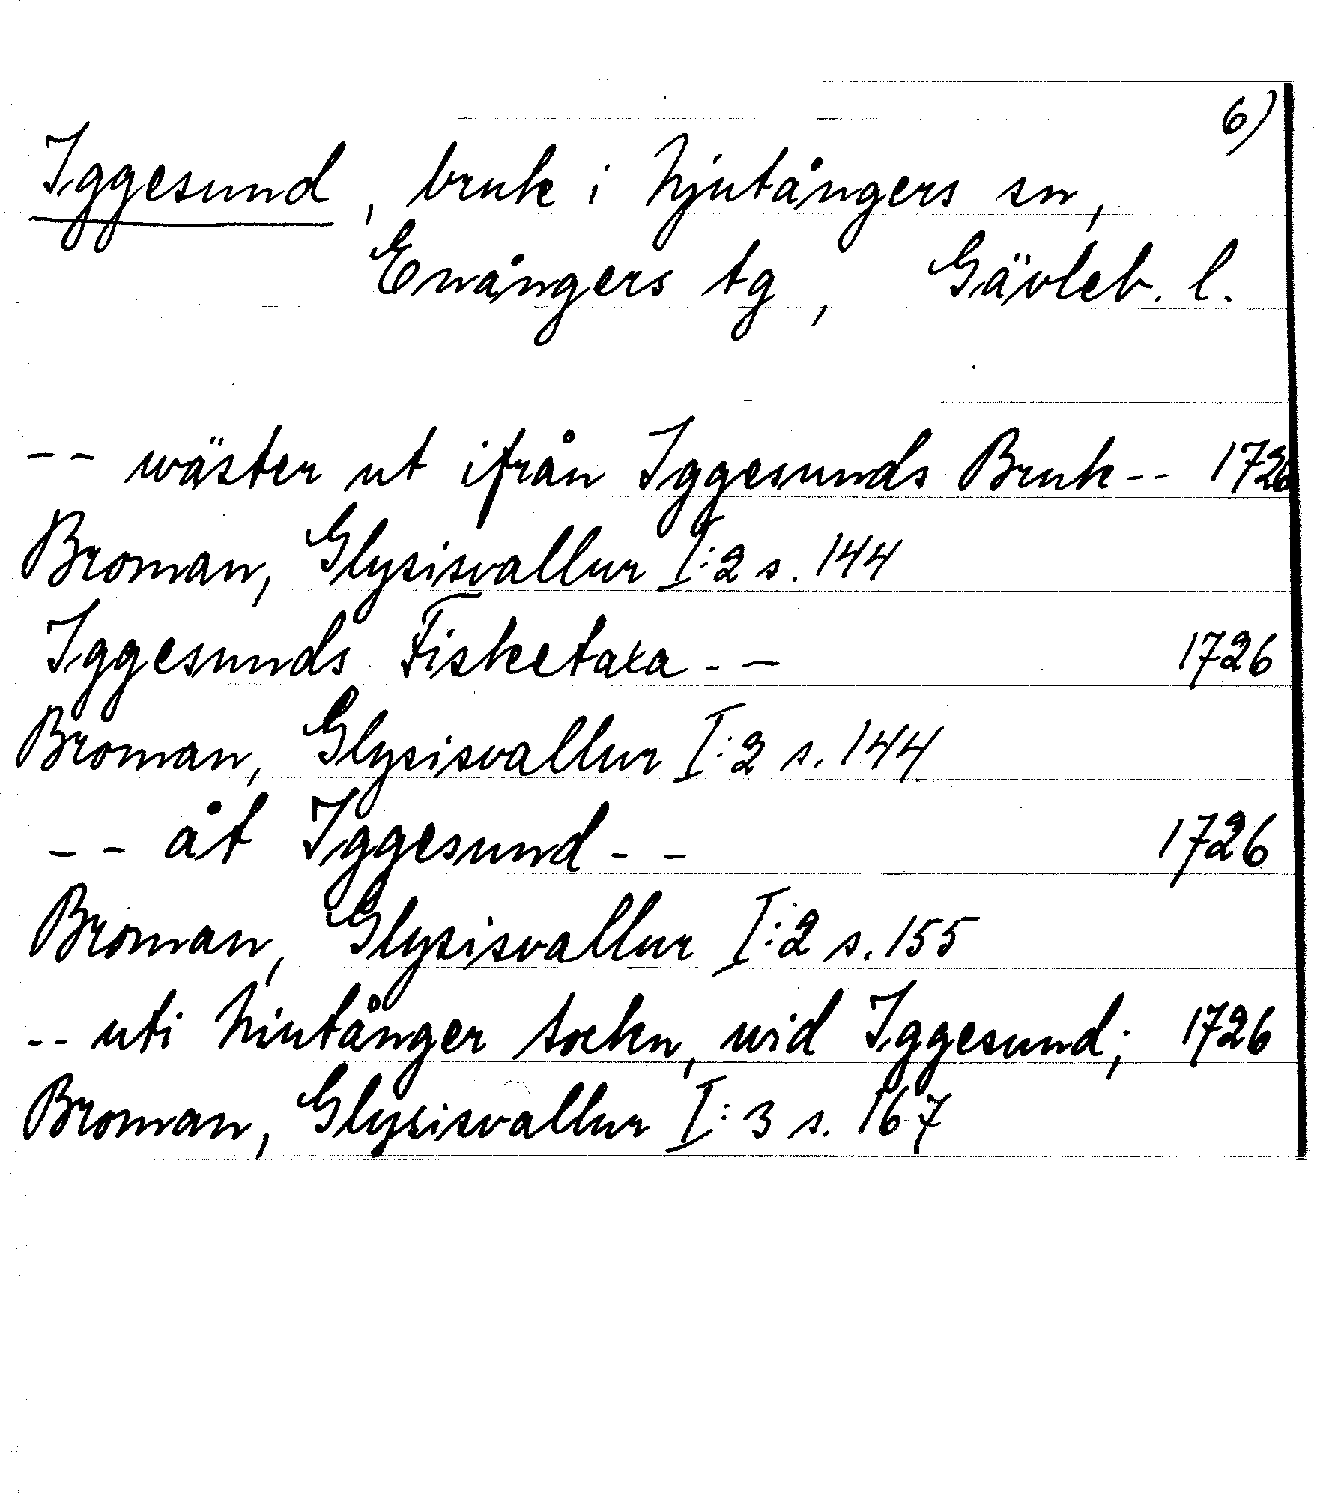 6)
Iggesund, bruk i Njutångers sn,
Enångers tg, Gävleb. l.
-- wäster ut ifrån Iggesunds Bruk -- 1726
Broman, Glysisvallur I:2 s. 144
Iggesunds Fisketaxa -- 1726
Broman, Glysisvallur I:2 s. 144
-- åt Iggesund -- 1726
Broman, Glysisvallur I:2 s. 155
-- uti Niutånger sockn, wid Iggesund; 1726
Broman, Glysisvallur I:3 s. 167